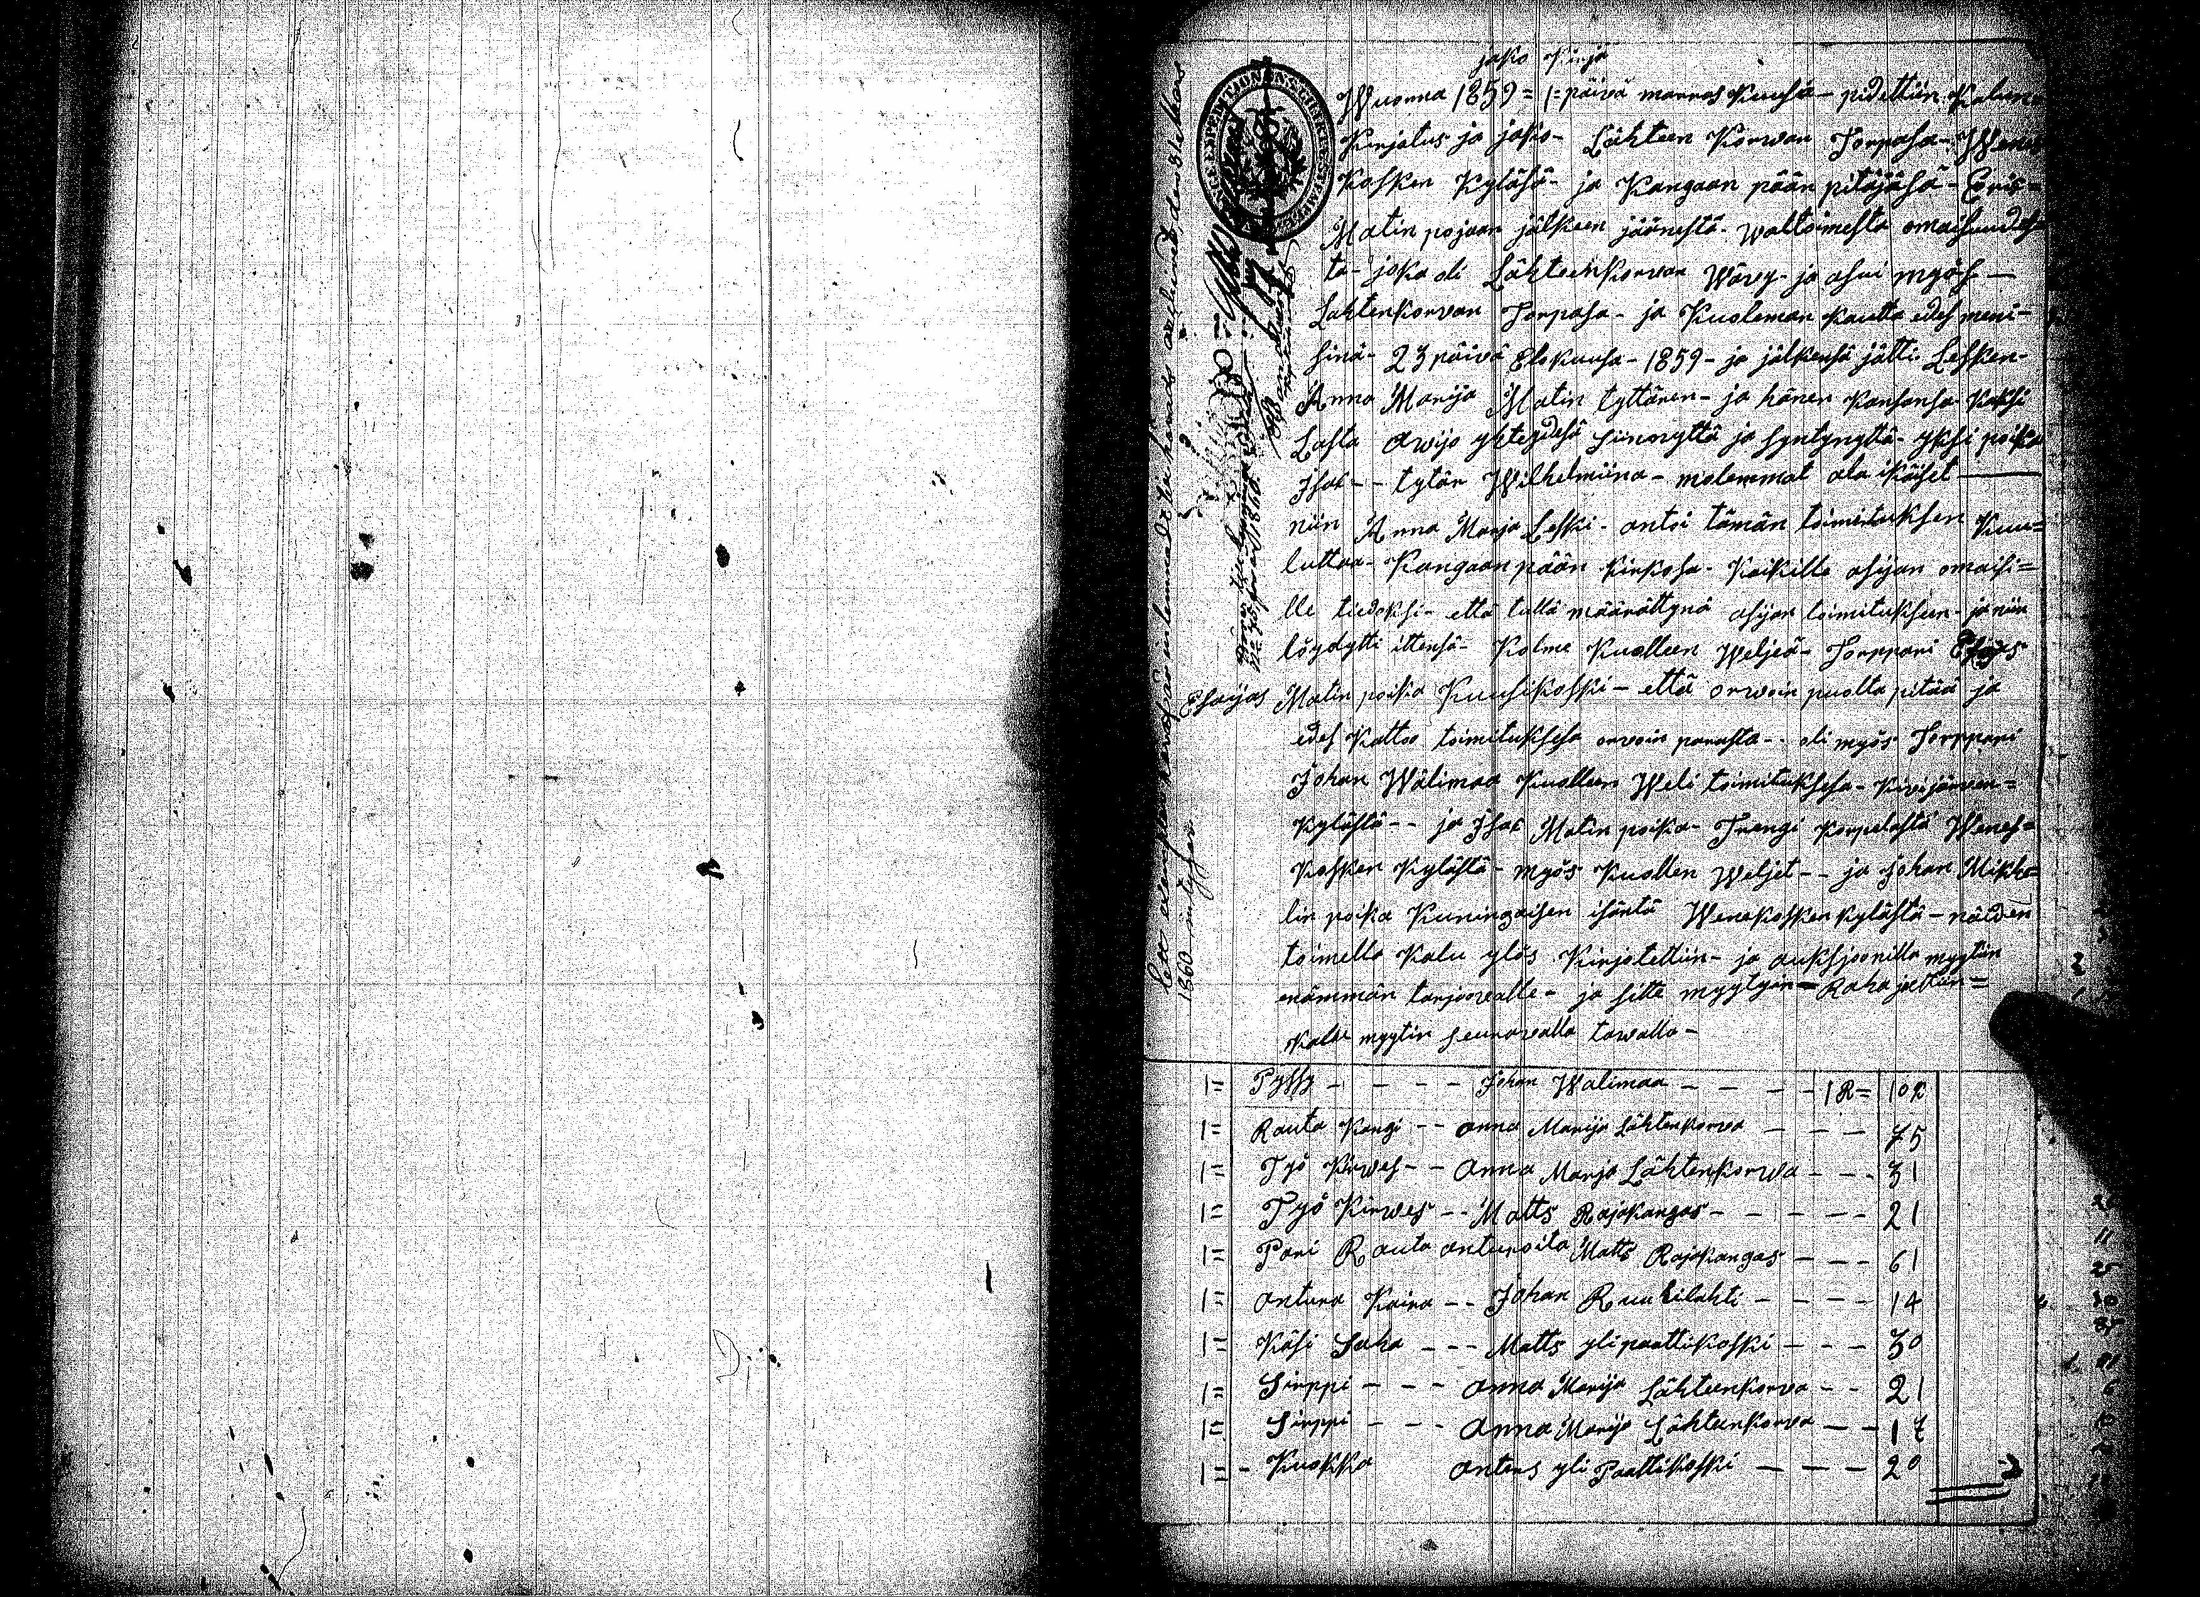 jako Kirja
Wuonna 1859 = 1= päivä marras Kuusa - pidettiin Kalun
Kirjatus ja jako - Lähteen Korwan Torpasa - Wenes
Kosken Kyläsä - ja Kangaan pään pitäjäsä - Eris=
Matin pojaan jälkeen jäänestä - waltoimesta omaisuudes
ta - joka oli Lähteenkorwan Wävy - ja asui myös —
Lähtenkorvan Torpasa - ja Kuoleman kautta edes meni=
sinä - 23 päivä Elokuusa - 1859 - ja jälkensä jätti Lesken-
Anna Marija Matin tyttären - ja hänen Kansansa Kaksi
Lasta awijo yhteydesä siinnyttä ja syntynyttä - yksi poika
Isak -- tytär Wilhelmiina - molemmat ala ikäiset —
niin Anna Marja Leski - antoi tämän toimituksen Kuu=
luttaa - Kangaan pään kirkosa - Kaikille asijan omaisi=
lle tiedoksi - että tulla määrättynä asijan toimituksen - ja niin
löydytti ittensä - Kolme Kuolleen Weljeä - Torppari
Esaijas Matin poika Kuusikoski - että orwoin puolta pitää ja
edes kattoo toimituksesa orwoin parasta -- oli myös Torppari
Johan Wälimaa Kuolleen Weli toimituksesa - Kivijärven=
kylästä -- ja Isak Matin poika - Trengi Korpelasta Wenes=
Kosken Kylästä - myös Kuollen Weljet -- ja Johan Mikke=
lin poika Kuningaisen isäntä Weneskosken kylästä - näiden
toimella Kalu ylös Kirjotettiin - ja auksjoonilla myytiin
enämmän tarjoovalle - ja sitte myytyin Raha jaettiin=
Kalu myytin seuraavalla tawalla -
1= Pyssy - - - - Johan Walimaa - - - - 1R= 10k
1= Rauta Kangi -- anna Marija Lähtenkorva - - - 75
1= Työ Kirwes -- Anna Marja Lähtenkorwa - - - 31
1= Työ Kirwes -- Matts Rajakangas - - - - - 21
1= Pari Rauta anturoita Matts Rajakangas - - - 61
1= antura Kaira -- Johan Ruuhilahti - - - - 14
1= Käsi Saha - - - Matts ylipaattikoski - - - 30
1= Sirppi - - - anna Marija Lähteenkorva - - 21
1= Sirppi - - - Anna Marija Lähteenkorva - - 17
1= - Kuokka anters yli Paattikoski - - - 20